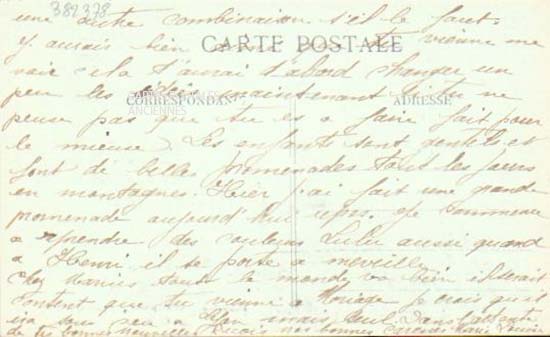 382378
une autre combinaison s'il le faut.
J'aurais bien
CARTE POSTALE
vienne me
voir cela t'aurai d'abord changer un
peu les idées maintenant si tu ne
CORRESPONDANCE
CARTES POSTALES
ANCIENNES
ADRESSE
pense pas que tu es a faire fait pour
le mieuse. Les enfants sont gentils et
font de belles promenades tout les jours
en montagnes. Hier j'ai fait une grande
promenade aujourd'hui repos. Je commence
a reprendre des couleurs Lulu aussi quand
a Henri il se porte a merveille
Chez Marius tout le monde va bien il serait
content que tu vienne a Uriage je crois qu'il
ira sous peu a Lyon mais seul. Dans l'attente
de tes bonnes nouvelles reçois nos bonnes caresses Marie Louise